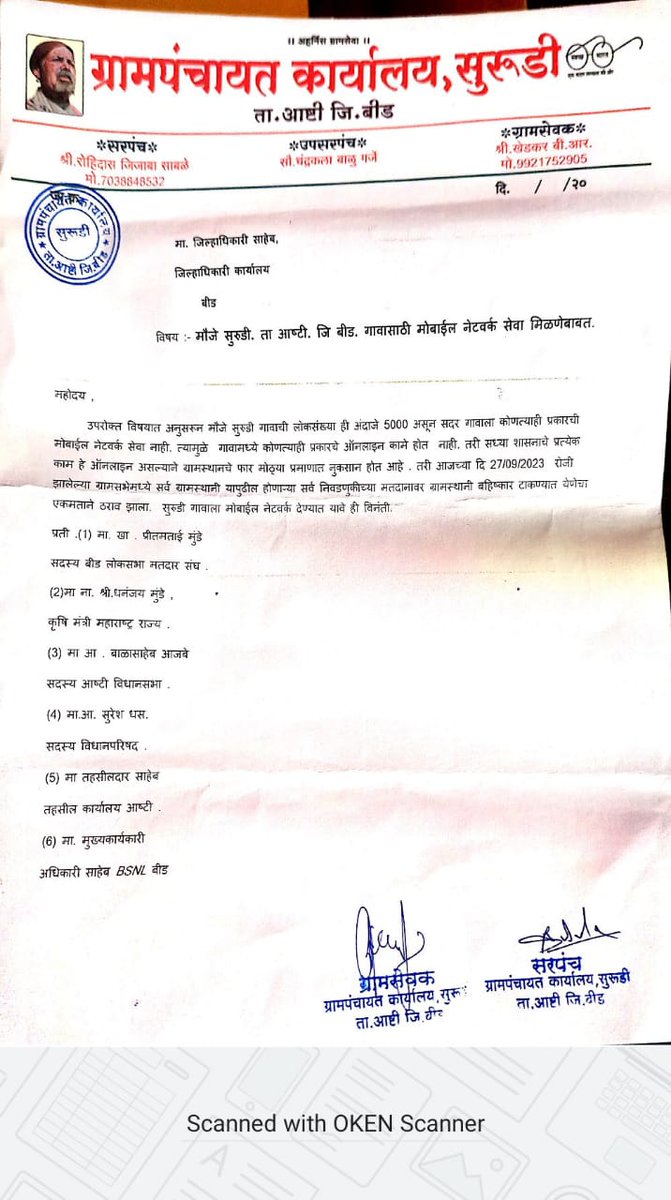 ।। अहर्निस ग्रामसेवा ।।
ग्रामपंचायत कार्यालय, सुरूडी
ता.आष्टी जि.बीड
*सरपंच*
श्री.रोहिदास जिजाबा साबळे
मो.7038848532
*उपसरपंच*
सौ.चंद्रकला बाळु गर्जे
*ग्रामसेवक*
श्री.खेडकर बी.आर.
मो.9921752905
दि. / /२०
ग्रामपंचायत कार्यालय
सुरूडी
ता.आष्टी जि.बीड
मा. जिल्हाधिकारी साहेब,
जिल्हाधिकारी कार्यालय
बीड
विषय :- मौजे सुरुडी. ता आष्टी. जि बीड. गावासाठी मोबाईल नेटवर्क सेवा मिळणेबाबत.
महोदय ,
उपरोक्त विषयात अनुसरून मौजे सुरुडी गावाची लोकसंख्या ही अंदाजे 5000 असून सदर गावाला कोणत्याही प्रकारची
मोबाईल नेटवर्क सेवा नाही. त्यामुळे गावामध्ये कोणत्याही प्रकारचे ऑनलाइन कामे होत नाही. तरी सध्या शासनाचे प्रत्येक
काम हे ऑनलाइन असल्याने ग्रामस्थानचे फार मोठ्या प्रमाणात नुकसान होत आहे . तरी आजच्या दि 27/09/2023 रोजी
झालेल्या ग्रामसभेमध्ये सर्व ग्रामस्थानी यापुढील होणाऱ्या सर्व निवडणुकीच्या मतदानावर ग्रामस्थानी बहिष्कार टाकण्यात येणेचा
एकमताने ठराव झाला. सुरुडी गावाला मोबाईल नेटवर्क देण्यात यावे ही विनंती.
प्रती .(1) मा . खा . प्रीतमताई मुंडे
सदस्य बीड लोकसभा मतदार संघ .
(2)मा ना. श्री.धनंजय मुंडे ,
कृषि मंत्री महाराष्ट्र राज्य .
(3) मा आ . बाळासाहेब आजबे
सदस्य आष्टी विधानसभा .
(4) मा.आ. सुरेश धस.
सदस्य विधानपरिषद .
(5) मा तहसीलदार साहेब
तहसील कार्यालय आष्टी .
(6) मा. मुख्यकार्यकारी
अधिकारी साहेब BSNL बीड
ग्रामसेवक
ग्रामपंचायत कार्यालय,सुरु
ता.आष्टी जि.बीड
सरपंच
ग्रामपंचायत कार्यालय,सुरूडी
ता.आष्टी जि.बीड
Scanned with OKEN Scanner